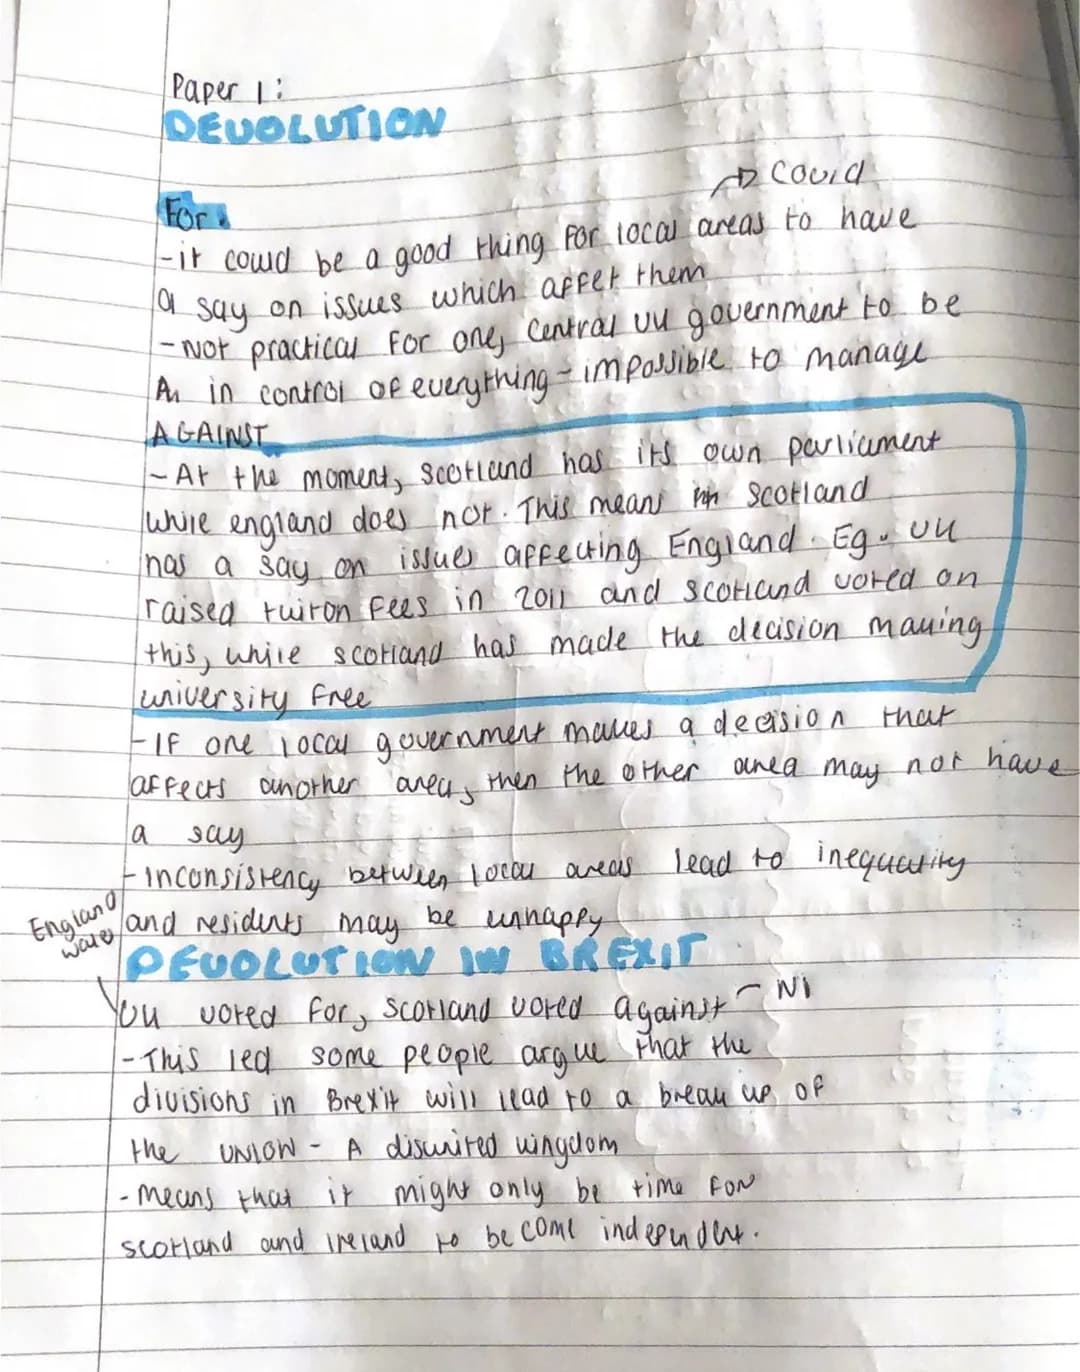 Paper 1:
DEVOLUTION
→ Covid
For.
-it could be a good thing for local areas to have
a say on issues which affet them
-Not practical for one, central UK government to be
in control of everything - impossible to manage
AGAINST
- At the moment, scotland has its own parliament
while england does not. This means Scotland
has a say on issues affecting England. Eg. UK
raised tuiton fees in 2011 and scotland voted on
this, while scotland has made the decision making
university free
-If one local government makes a decision that
affects another area, then the other area may not have
a say
-Inconsistency between local areas lead to inequality
and residents may be unhappy
England
wales
DEVOLUTION IN BREXIT
UK voted for, scotland voted against - NI
-This led some people argue that the
divisions in Brexit will lead to a break up of
the UNION - A disunited kingdom
-means that it might only be time for
scotland and ireland to become independent.